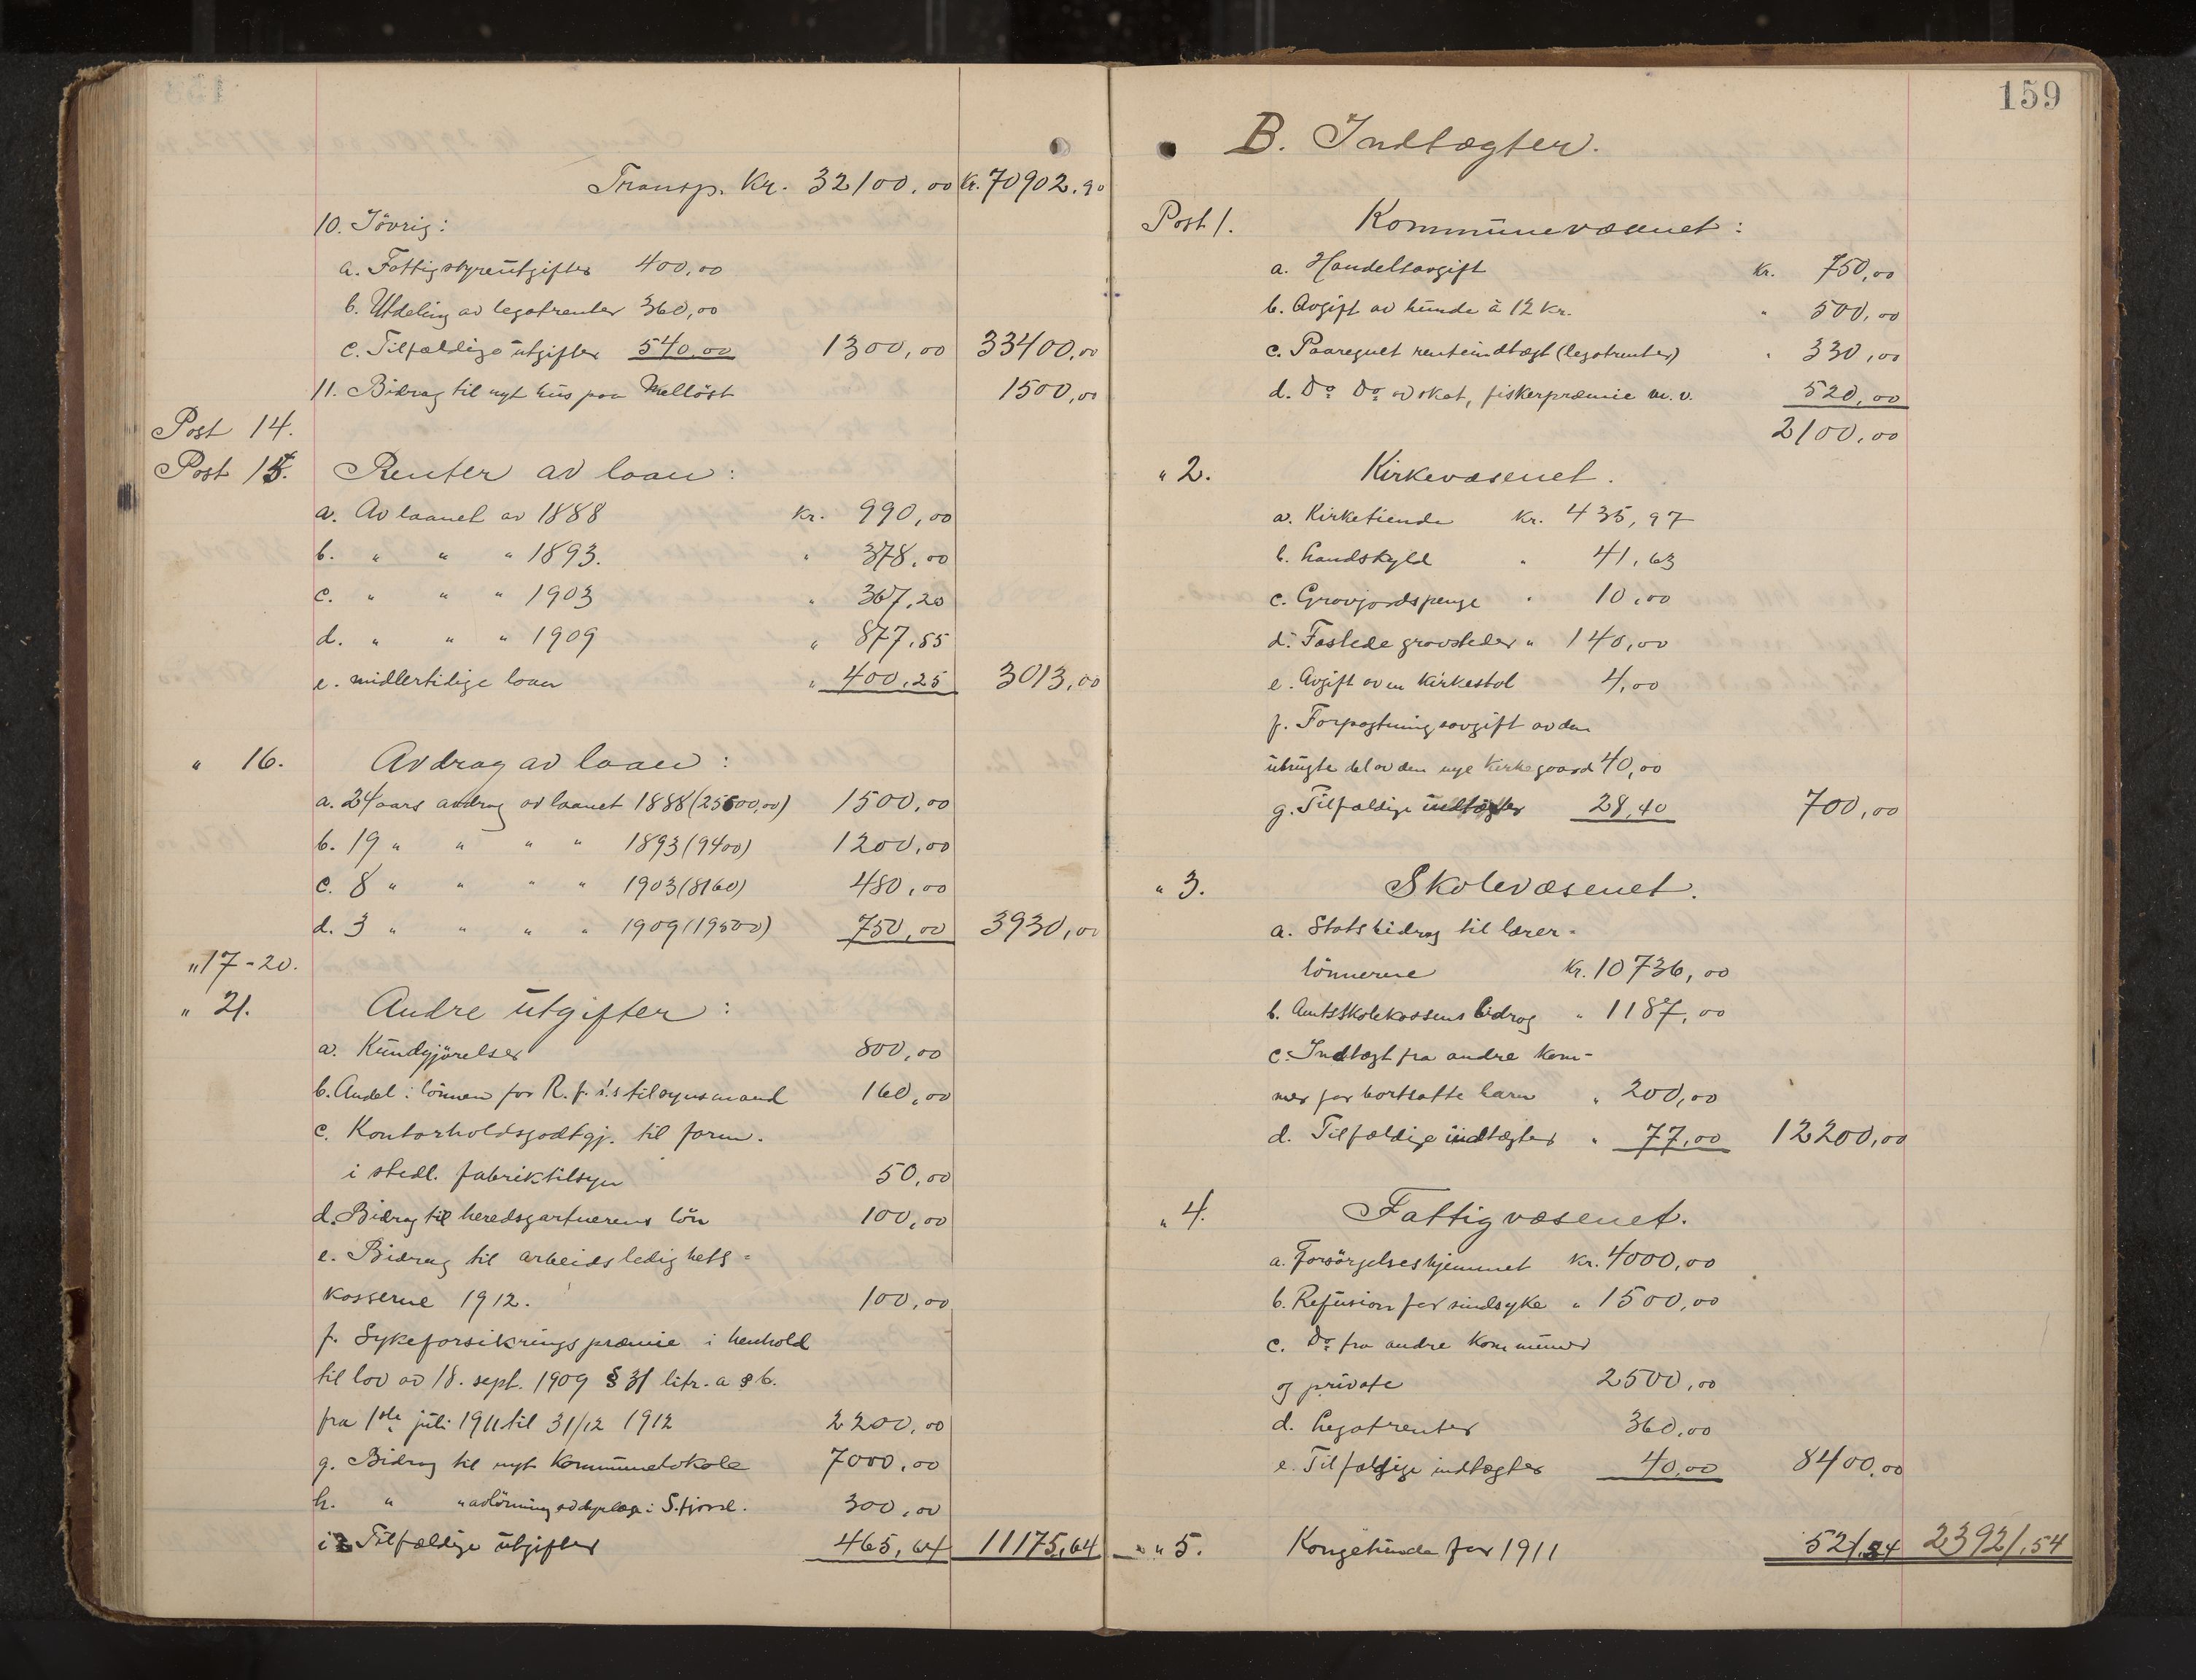 Transp. Kr. 32100,00 Kr. 70902,90
10. Iövrig:
a. Fattigstyreutgifter 400,00
b. Utdeling av legatrenter 360,00
c. Tilfældige utgifter 540,00 1300,00 33400,00
11. Bidrag til nyt hus paa Melløst 1500,00
Post 14.
Post 15. Renter av laan:
a. Av laanet av 1888 kr. 990,00
b. " " " 1893. " 378,00
c. " " " 1903 " 367,20
d. " " " 1909 " 877,55
e. midlertidige laan " 400,25 3013,00
" 16. Avdrag av laan:
a. 24 aars avdrag av laanet 1888 (25500,00) 1500,00
b. 19 " " " " 1893 (9400) 1200,00
c. 8 " " " " 1903 (8160) 480,00
d. 3 " " " " 1909 (19500) 750,00 3930,00
" 17-20.
" 21. Andre utgifter:
a. Kundgjörelser 800,00
b. Andel i lönnen for R. f. s. tilsynsmand 160,00
c. Kontorholdsgodtgj. til form.
i stedl. fabriktilsyn 50,00
d. Bidrag til heredsgartnerens lön 100,00
e. Bidrag til arbeidsledighets-
kasserne 1912. 100,00
f. Sykeforsikringspræmie i henhold
til lov av 18. sept. 1909 § 31 litr. a & b.
fra 1ste juli 1911 til 31/12 1912 2200,00
g. Bidrag til nyt Kommunelokale 7000,00
h. " " avlönning av dyrlæge i S.fjord. 300,00
i. Tilfældige utgifter 465,64 11175,64
159
B. Indtægter.
Post 1. Kommunevæsenet:
a. Handelsavgift Kr. 750,00
b. Avgift av hunde à 12 Kr. " 500,00
c. Paaregnet renteindtægt (legatrenter) " 330,00
d. Do Do av skat, fiskerpræmie m.v. 520,00
2100,00
" 2. Kirkevæsenet.
a. Kirketiende Kr. 435,97
b. Landskyld " 41,63
c. Gravjordspenge " 10,00
d. Fæstede gravsteder " 140,00
e. Avgift av en Kirkestol 4,00
f. Forpagtningsavgift av den
ubrugte del av den nye Kirkegaard 40,00
g. Tilfældige indtægter 28,40 700,00
" 3. Skolevæsenet.
a. Statsbidrag til lærer-
lönnerne Kr. 10736,00
b. Amtsskolekassens bidrag " 1187,00
c. Indtægt fra andre kom-
mer for bortsatte barn " 200,00
d. Tilfældige indtægter " 77,00 12200,00
" 4. Fattigvæsenet.
a. Forsörgelseshjemmet Kr. 4000,00
b. Refusion for sindsyke " 1500,00
c. Do fra andre kommuner
og private 2500,00
d. Legatrenter 360,00
e. Tilfældige indtægter 40,00 8400,00
" 5. Kongetiende for 1911 521,54 23921,54